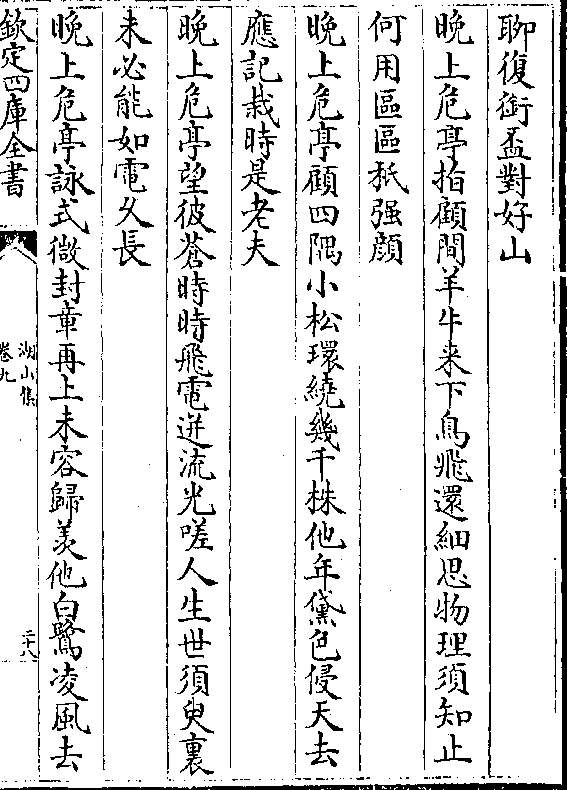 聊復銜盃對好山
晚上危亭指顧間羊牛来下鳥飛還細思物理須知止
何用區區秖强顔
晚上危亭顧四隅小松環繞幾千株他年黛色侵天去
應記栽時是老夫
晚上危亭望彼蒼時時飛電迸流光嗟人生世須臾裏
未必能如電久長
晚上危亭詠式微封章再上未容歸羡他白鷺凌風去
欽定四庫全書
湖山集
卷九
二十八